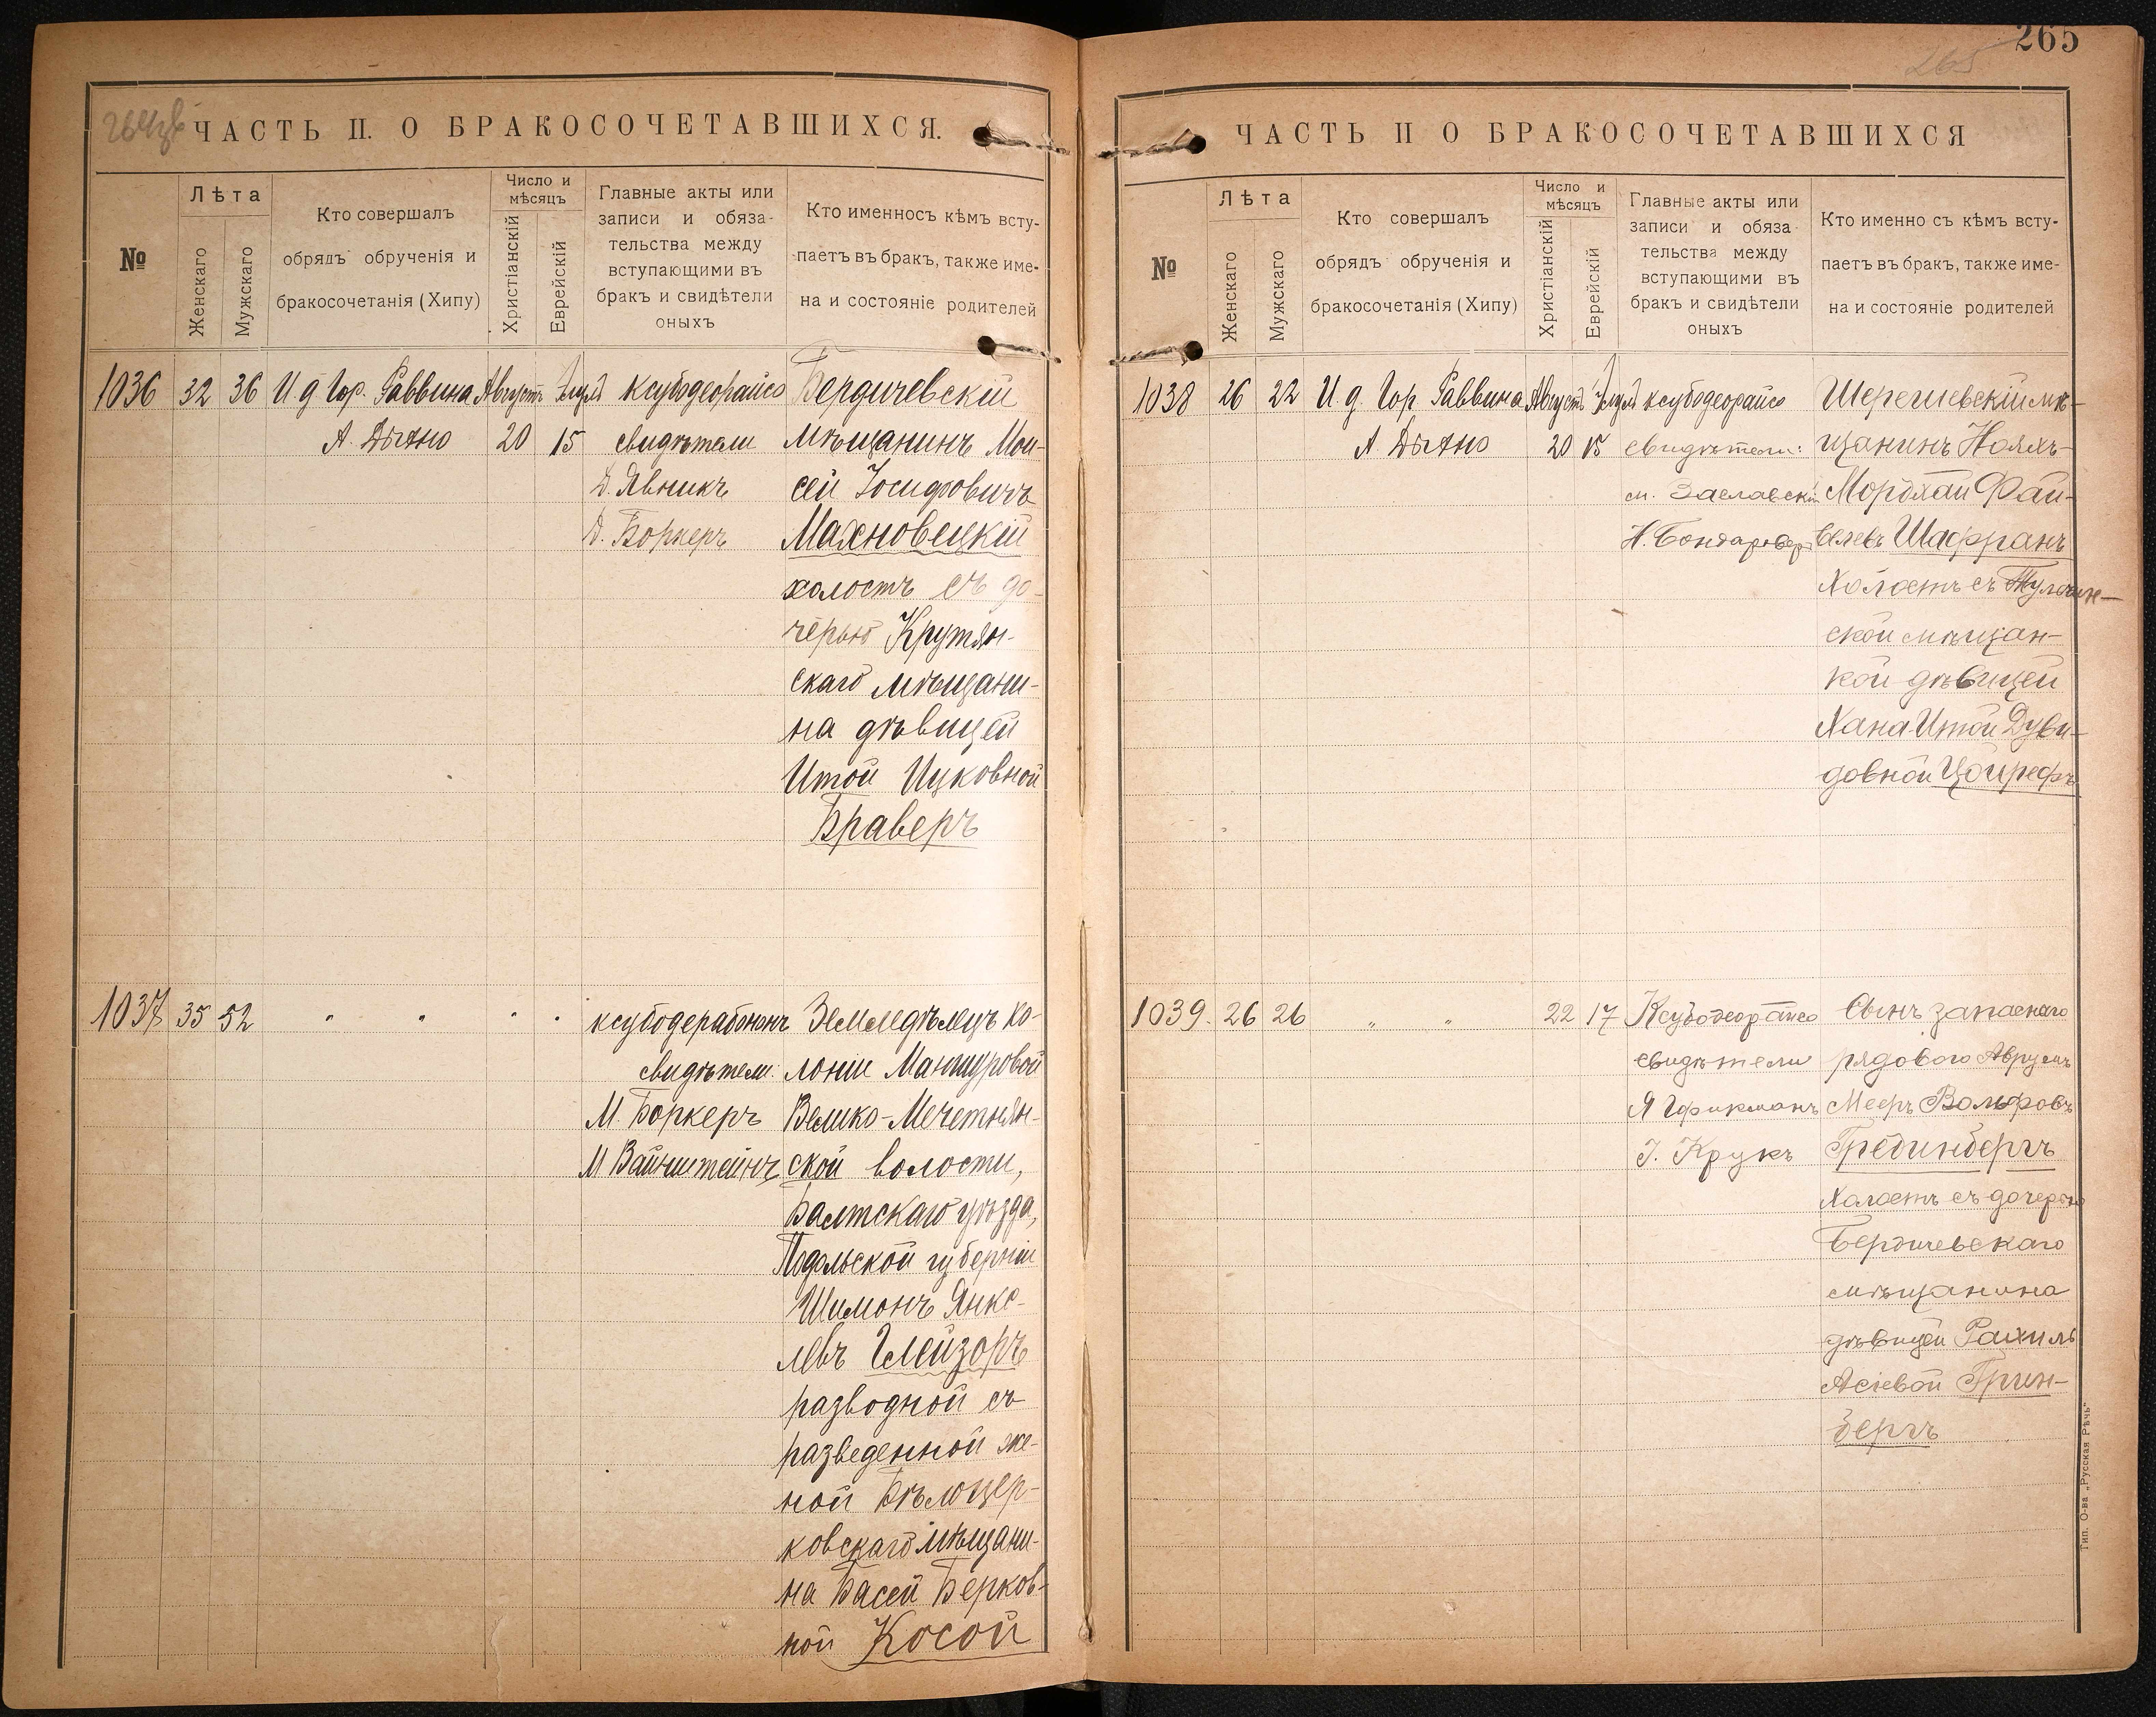 ЧАСТЬ II. О БРАКОСОЧЕТАВШИХСЯ.
№
Лѣта
Женскаго
Мужскаго
Кто совершалъ
обрядъ обрученія и
бракосочетанія (Хипу)
Число и
мѣсяцъ
Христіанскій
Еврейскій
Главные акты или
записи и обяза-
тельства между
вступающими въ
бракъ и свидѣтели
оныхъ
Кто именносъ кѣмъ всту-
паетъ въ бракъ, также име-
на и состояніе родителей
1036 32 36
И д Гор. Раввина
А. Дыхно
Августъ
20
Элулъ
15
ксубодеорайсо
свидѣтели
Д. Явникъ
Д. Боркеръ
Бердичевскій
мѣщанинъ Мои-
сей Іосифовичъ
Махновецкій
холостъ съ до-
черью Крутян-
скаго мѣщани-
на дѣвицей
Итой Ицковной
Браверъ
1037 35 52
" " " "
ксубодерабононъ
свидѣтели:
М. Боркеръ
М Вайнштейнъ
Земледѣлецъ ко-
лоніи Маншуровой
Велико-Мечетнян-
ской волости,
Балтскаго уѣзда,
Подольской губерніи
Шимонъ Янке-
левъ Глейзоръ
разводной съ
разведенной же-
ной Бѣлоцер-
ковскаго мѣщани-
на Басей Берков-
ной Косой
265
265
ЧАСТЬ II О БРАКОСОЧЕТАВШИХСЯ
№
Лѣта
Женскаго
Мужскаго
Кто совершалъ
обрядъ обрученія и
бракосочетанія (Хипу)
Число и
мѣсяцъ
Христіанскій
Еврейскій
Главные акты или
записи и обяза
тельства между
вступающими въ
бракъ и свидѣтели
оныхъ
Кто именно съ кѣмъ всту-
паетъ въ бракъ, также име-
на и состояніе родителей
1038 26 22
И. д. Гор Раввина
А. Дыхно
Августъ
20
Элулъ
15
ксубодеорайсо
свидѣтели:
м. Заславскій
Н. Бондаревъ
Шерешевскій мѣ-
щанинъ Нояхъ-
Мордхай Фай-
велевъ Шафранъ
Холостъ съ Тульчин-
ской мѣщан-
кой дѣвицей
Хана-Итой Дуви-
довной Цойрефъ
1039. 26 26
" "
22 17
Ксубодеорайсо
свидѣтели
Я Гофикманъ
І. Крукъ
Сынъ запаснаго
рядового Аврумъ
Мееръ Вольфовъ
Грединбергъ
Холостъ съ дочерью
Бердичевскаго
мѣщанина
дѣвицей Рахиль
Асіевой Грин-
бергъ
Тип. О-ва „Русская Рѣчь"